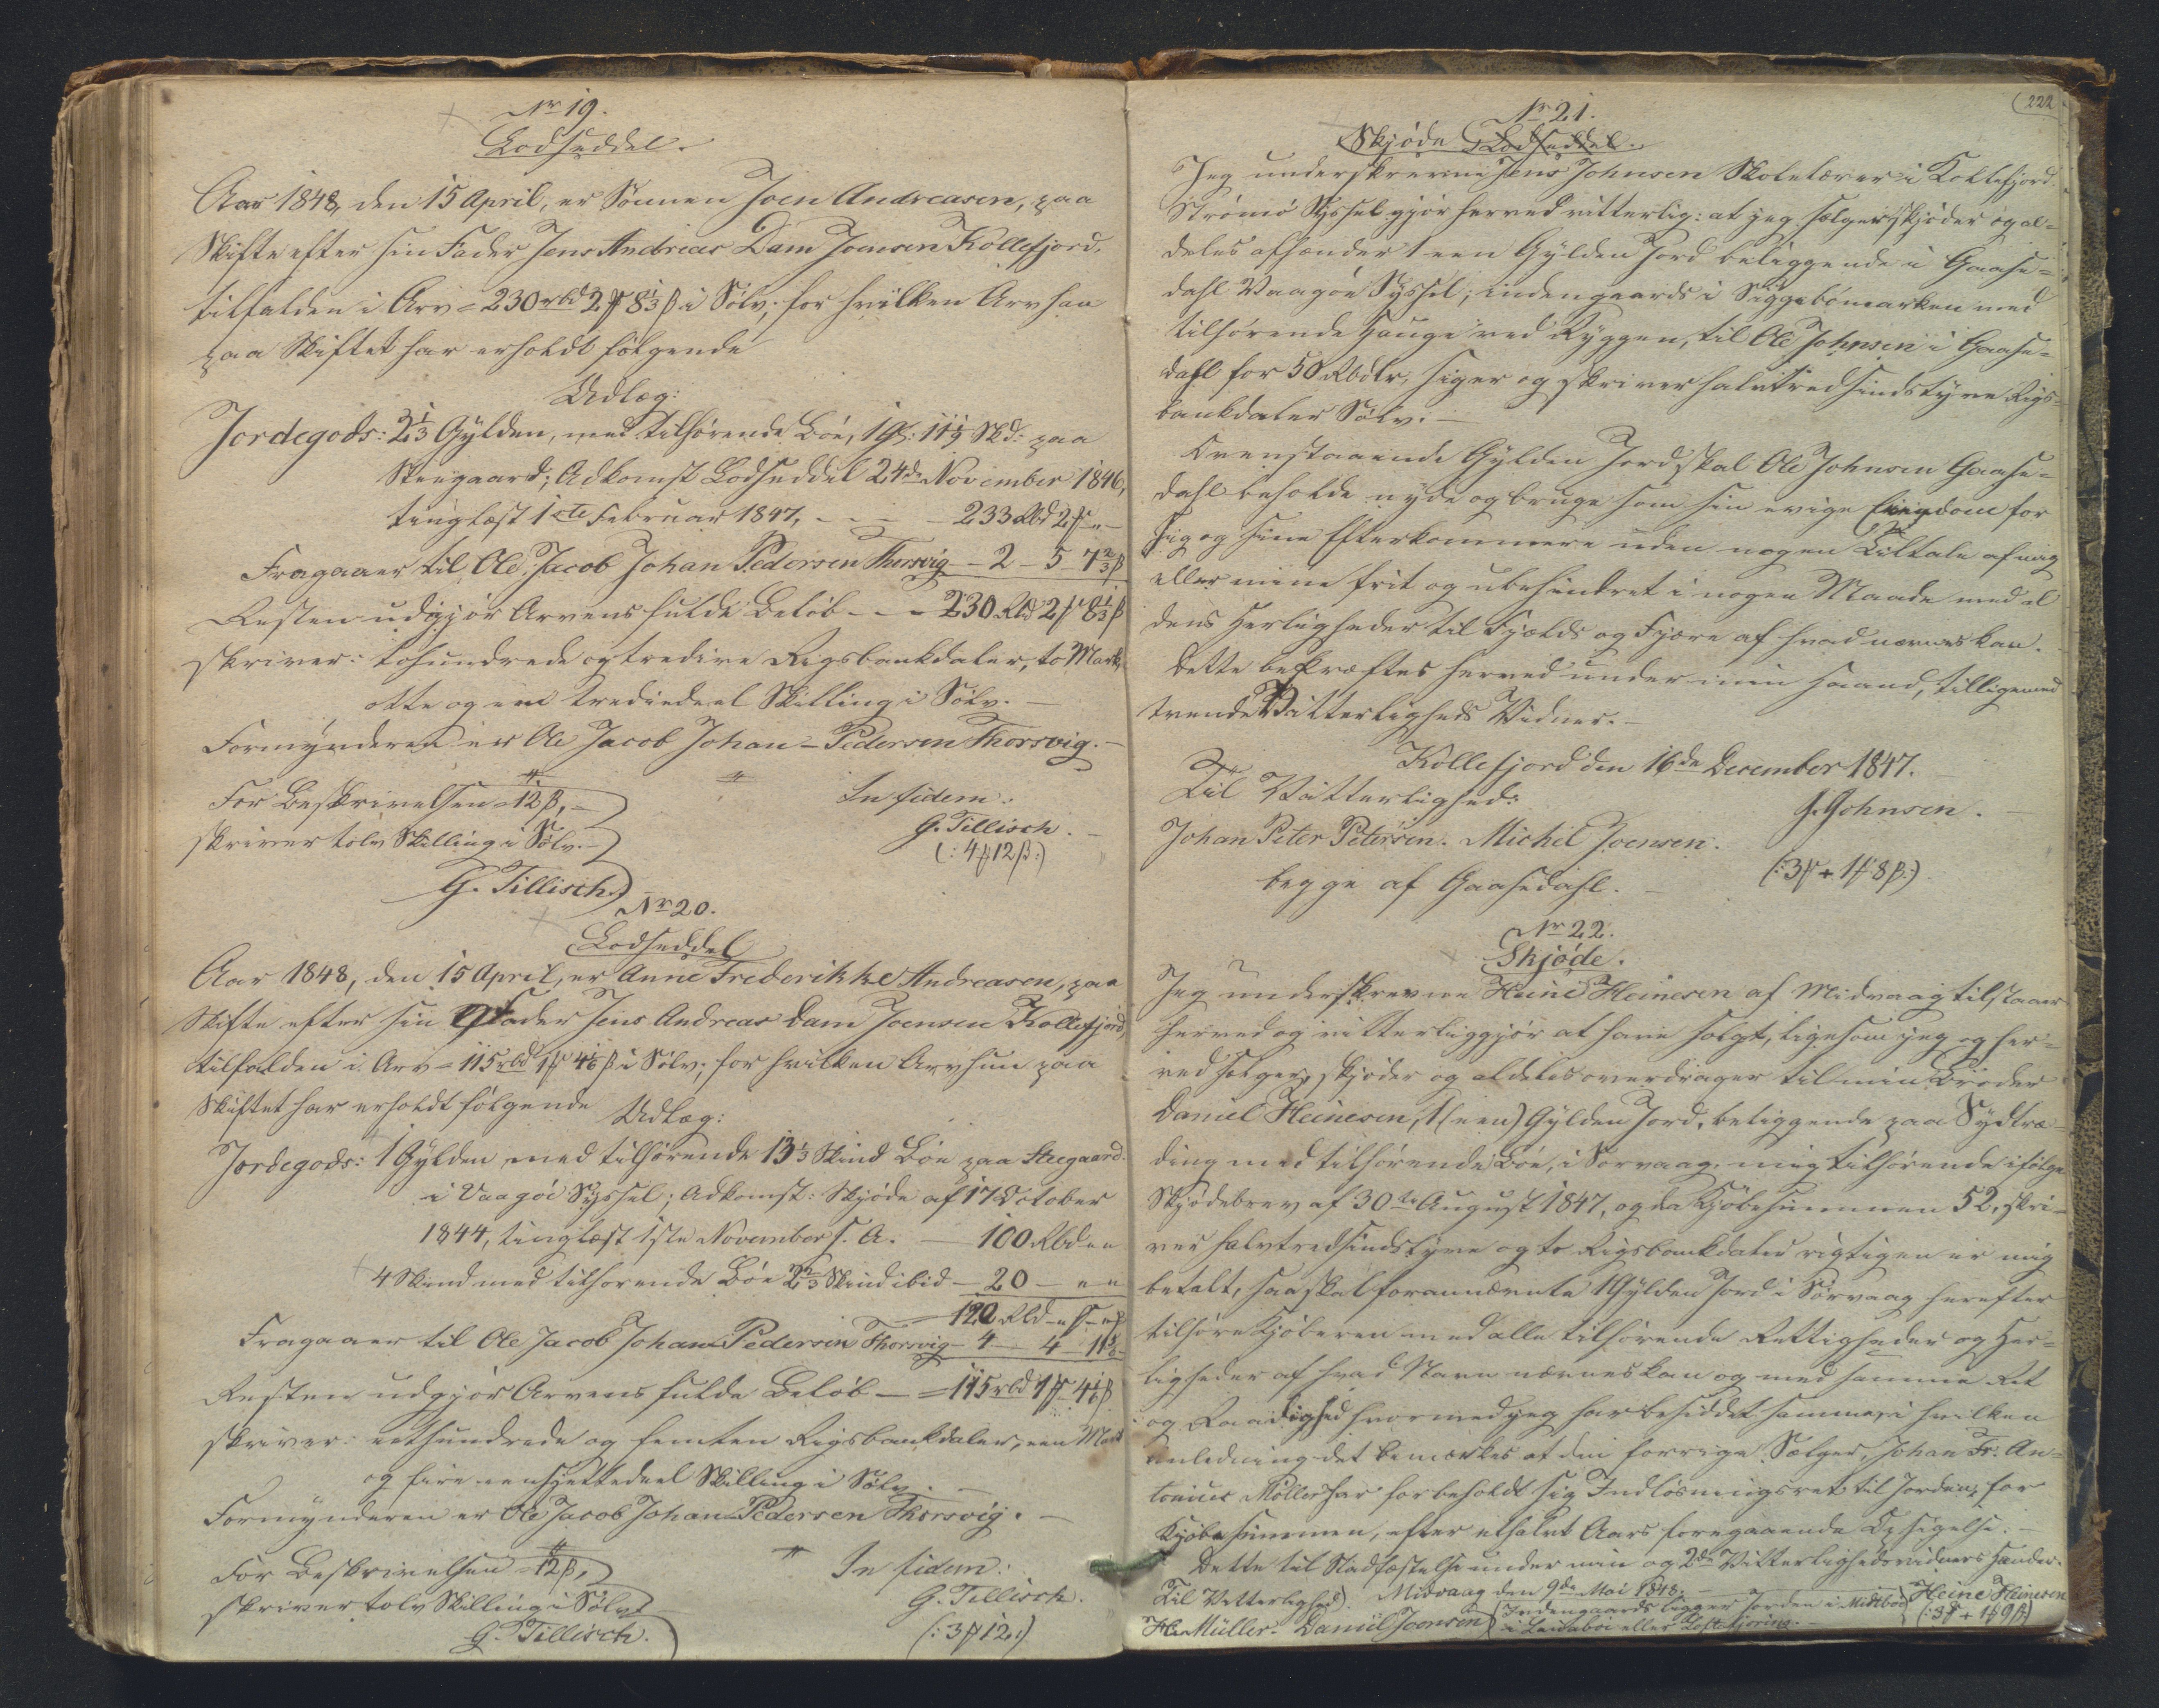 Nr 19.
Lodseddel.
Aar 1848, den 15 April, er Sönnen Joen Andreasen, paa
Skifte efter sin Fader Jens Andreas Dam Joensen Kollefjord,
tilfalden i Arv = 230 rbd 2 ₻ 8 1/3 β i Sölv; for hvilken Arv han
paa Skiftet har erholdt fölgende
Udlæg:
Jordegods: 2 1/3 Gylden, med tilhörende Böe, paa
Steegaard; Adkomst Lodseddel 24de November 1846,
tinglæst 1ste Februar 1847, - - - 233 Rbd 2 ₻ „ -
Fragaaer til Ole Jacob Johan Pedersen Thorsvig - 2 - 5 - 7 2/3 β
Resten udgjör Arvens fulde Belöb - - - 230 Rbd 2 ₻ 8 1/3 β
skriver: tohundrede og tredive Rigsbankdaler, to Mark
otte og een trediedeel Skilling i Sölv. -
Formynderen er Ole Jacob Johan Pedersen Thorsvig. -
For Beskrivelsen 12 β, -
In fidem:
skriver tolv Skilling i Sölv. -
G. Tillisch. -
(: 4 ₻ 12 β :)
G. Tillisch.
Nr 20.
Lodseddel
Aar 1848, den 15 April, er Anne Frederikke Andreasen, paa
Skifte efter sin Fader Jens Andreas Dam Joensen Kollefjord,
tilfalden i Arv = 115 rbd 1 ₻ 4 1/6 β i Sölv; for hvilken Arv hun paa
Skiftet har erholdt fölgende
Udlæg:
Jordegods: 1 Gylden med tilhörende 13 1/3 Skind Böe paa Steegaard
i Vaagöe Syssel; Adkomst: Skjöde af 17 October
1844, tinglæst 1ste November s. A. - 100 Rbd „ „
4 Skind med tilhörende Böe 2 2/3 Skind ibid - 20 - „ „
120 Rbd - „ ₻ - „ β
Fragaaer til Ole Jacob Johan Pedersen Thorsvig - 4 - 4 - 11
Resten udgjör Arvens fulde Belöb - = 115 rbd 1 ₻ 4 1/6 β
skriver: eethundrede og femten Rigsbankdaler, een Mark
og fire een sjettedeel Skilling i Sölv. -
Formynderen er Ole Jacob Johan Pedersen Thorsvig. -
For Beskrivelsen 12 β,
In fidem:
skriver tolv Skilling i Sölv
G. Tillisch.
G. Tillisch.
(: 3 ₻ 12 :)
222
Nr 21.
Skjöde Lodseddel.
Jeg underskrevne Jens Johnsen Skolelærer i Kollefjord
Strömö Syssel gjör herved vitterlig: at jeg sælger, skjöder og al=
deles afhænder 1 een Gylden Jord beliggende i Gaase=
dahl Vaagöe Syssel; indengaards i Siggebömarken med
tilhörende Hauge ved Ryggen, til Ole Johnsen i Gaase=
dahl for 50 Rbdlr, siger og skriver halvtredsindstyve Rigs=
bankdaler Sölv. -
Ovenstaaende Gylden Jord skal Ole Johnsen Gaase=
dahl beholde nyde og bruge som sin evige Eiendom for
sig og sine Efterkommere uden nogen Tiltale af mig
eller mine frit og ubehindret i nogen Maade med al
dens Herligheder til Fjelds og Fjære af hvad nævnes kan.
Dette bekræftes herved under min Haand, tilligemed
tvende Vitterligheds Vidner. -
Kollefjord den 16de December 1847.
Til Vitterlighed:
J. Johnsen. -
Johan Peter Petersen. Michel Joensen.
begge af Gaasedahl. -
(: 3 ₻ + 1 ₻ 8 β :)
Nr 22.
Skjöde.
Jeg underskrevne Heine Heinesen af Midvaag tilstaaer
herved og vitterliggjör at have solgt, ligesom jeg og her=
ved sælger, skjöder og aldeles overdrager til min Broder
Daniel Heinesen, 1 (een) Gylden Jord, beliggende paa Sydtræ=
ding med tilhörende Böe, i Sorvaag, mig tilhörende ifölge
Skjödebrev af 30te August 1847, og da Kjöbesummen 52, skri=
ver halvtredsindstyve og to Rigsbankdaler rigtigen er mig
betalt, saa skal forannævnte 1 Gylden Jord i Sörvaag herefter
tilhöre Kjöberen med alle tilhörende Rettigheder og Her=
ligheder af hvad Navn nævnes kan og med samme Ret
og Raadighed hvormed jeg har besiddet samme, i hvilken
Anledning det bemærkes at den forrige Sælger, Johan Fr. An=
tonius Möller har forbeholdt sig Indlösningsret til Jorden, for
Kjöbesummen, efter et halvt Aars foregaaende Opsigelse. -
Dette til Stadfæstelse under min og 2de Vitterlighedsvidners Hænder.
Til Vitterlighed. Midvaag den 9de Mai 1848. - Heine Heinesen
H. Müller. Daniel Joensen
Indengaards ligger Jorden i Midtböe
(: 3 ₻ + 1 ₻ 9 β :)